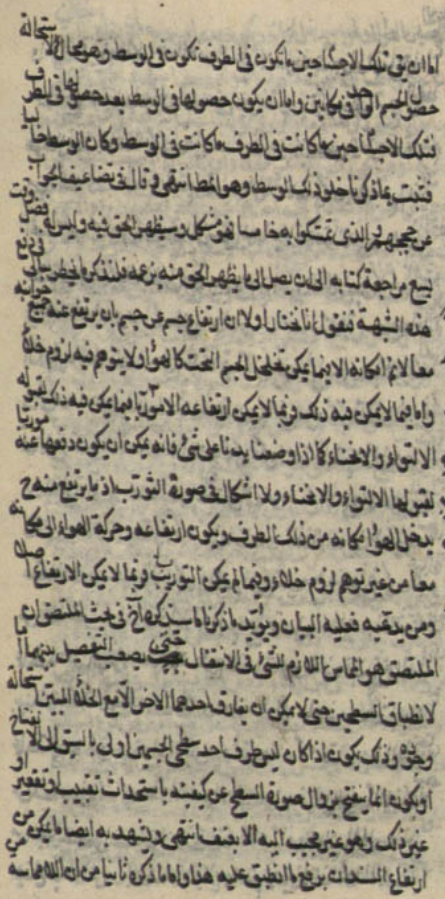 اما ان تبقى تلك الاجسام حين ما تكون في الطرف تكون في الوسط وهو محال لاستحالة
حصول الجسم الواحد في مكانين واما ان يكون حصولها في الوسط بعد حصولها في الطرف
فتلك الاجسام حين ما كانت في الطرف ما كانت في الوسط وكان الوسط خاليا
فثبت بما ذكرنا خلو ذلك الوسط وهو المط انتهى وقال في تضاعيف الجواب
عن حججهم الذي تمسكوا به خامسا فهو مشكل وسيظهر الحق فيه وليس
يسع مراجعة كتابه الى ان يصل الى ما يظهر الحق منه بزعمه فلنذكر ما يخطر ببالي
هذه الشبهة فنقول انا نختار اولا ان ارتفاع جسم عن جسم بان يرتفع عنه جميع
معا لانم امكانه الا فيما يمكن تخلخل الجسم المحت كالهواء ولا يتوهم فيه لزوم خلاء
واما فيما لا يمكن فيه ذلك فربما لا يمكن ارتفاعه الا موربا فيما يمكن فيه ذلك لقبوله
الالتواء والانحناء كما اذا وضعنا يدنا على شئ فانه يمكن ان يكون دفعها عنه موربا
لقبولها الالتواء والانحناء ولا اشكال في صورة التورب اذ ما يرتفع منه ح
يدخل الهواء مكانه من ذلك الطرف ويكون ارتفاعه وحركة الهواء الى مكانه
معا من غير توهم لزوم خلاء وفيما لم يمكن التوريب فربما لا يمكن الارتفاع اصلا
ومن يدعيه فعليه البيان ويؤيد ما ذكرنا ما سنذكره آخ في بحث الملتصق ان
الملتصق هو المماس اللازم للشئ في الانتقال حتى يصعب التفصيل بينهما
لانطباق السطحين حتى لا يمكن ان يفارق احدهما الاخر الا مع الخلاء المبين استحالته
وجوده وذلك يكون اذا كان ليس طرف احد سطحي الجسمين اولى بالسبق الى الانفتاح
او يكون انما ينفتح بزوال صورة السطح عن كيفيته باستحداث تقبيب او تقعير
غير ذلك وهو غير مجيب اليه الا بعنف انتهى ويشهد به ايضا ما يمكن من
ارتفاع المسندات برفع ما انطبق عليه هذا واما ما ذكره ثانيا من ان اللامماسة